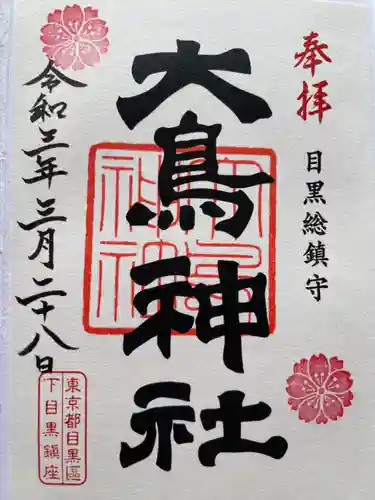 奉拝
目黒総鎮守
大鳥神社
令和三年三月二十八日
東京都目黒區
下目黒鎮座